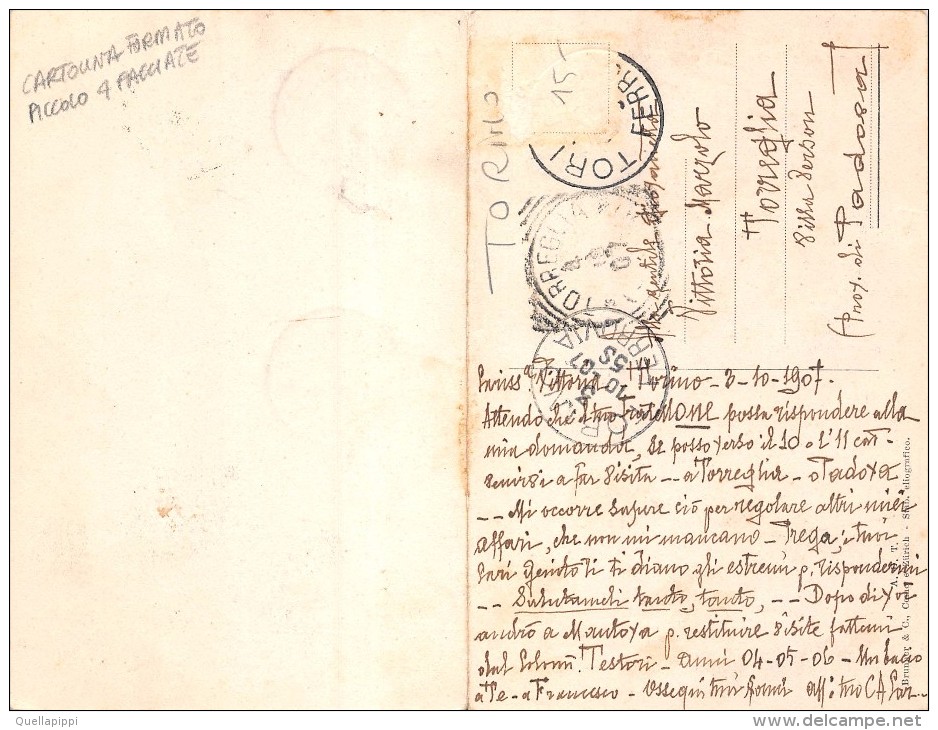 CARTOLINA FORMATO
PICCOLO 4 FACCIATE
TORINO
15-
TORI FERRO
TORREGLIA
07
FERROVIA
Gentile
Vittoria Marzolo
Torreglia
Villa Person
(Prov. di Padova)
Vittoria Torino - 3-10-1907.
Attendo che il tuo fratellONE possa rispondere alla
mia domanda, se posso verso il 10 o l'11
a far visita -- a Torreglia - o Padova
-- Mi occorre sapere ciò per regolare altri miei
affari, che non mi mancano - Prega i tuoi
cari genitori ti diano gli estremi p. rispondermi
-- Salutameli tanto, tanto, -- Dopo di voi
andrò a Mantova p. restituire visite fattemi
dal Testori - anni 04-05-06 - Un bacio
a Te - a Francesco - Ossequi tuoi aff. tuo
Brunner & C., Como e Zürich - Stab. eliografico.
Quellapippi
delcampe.net